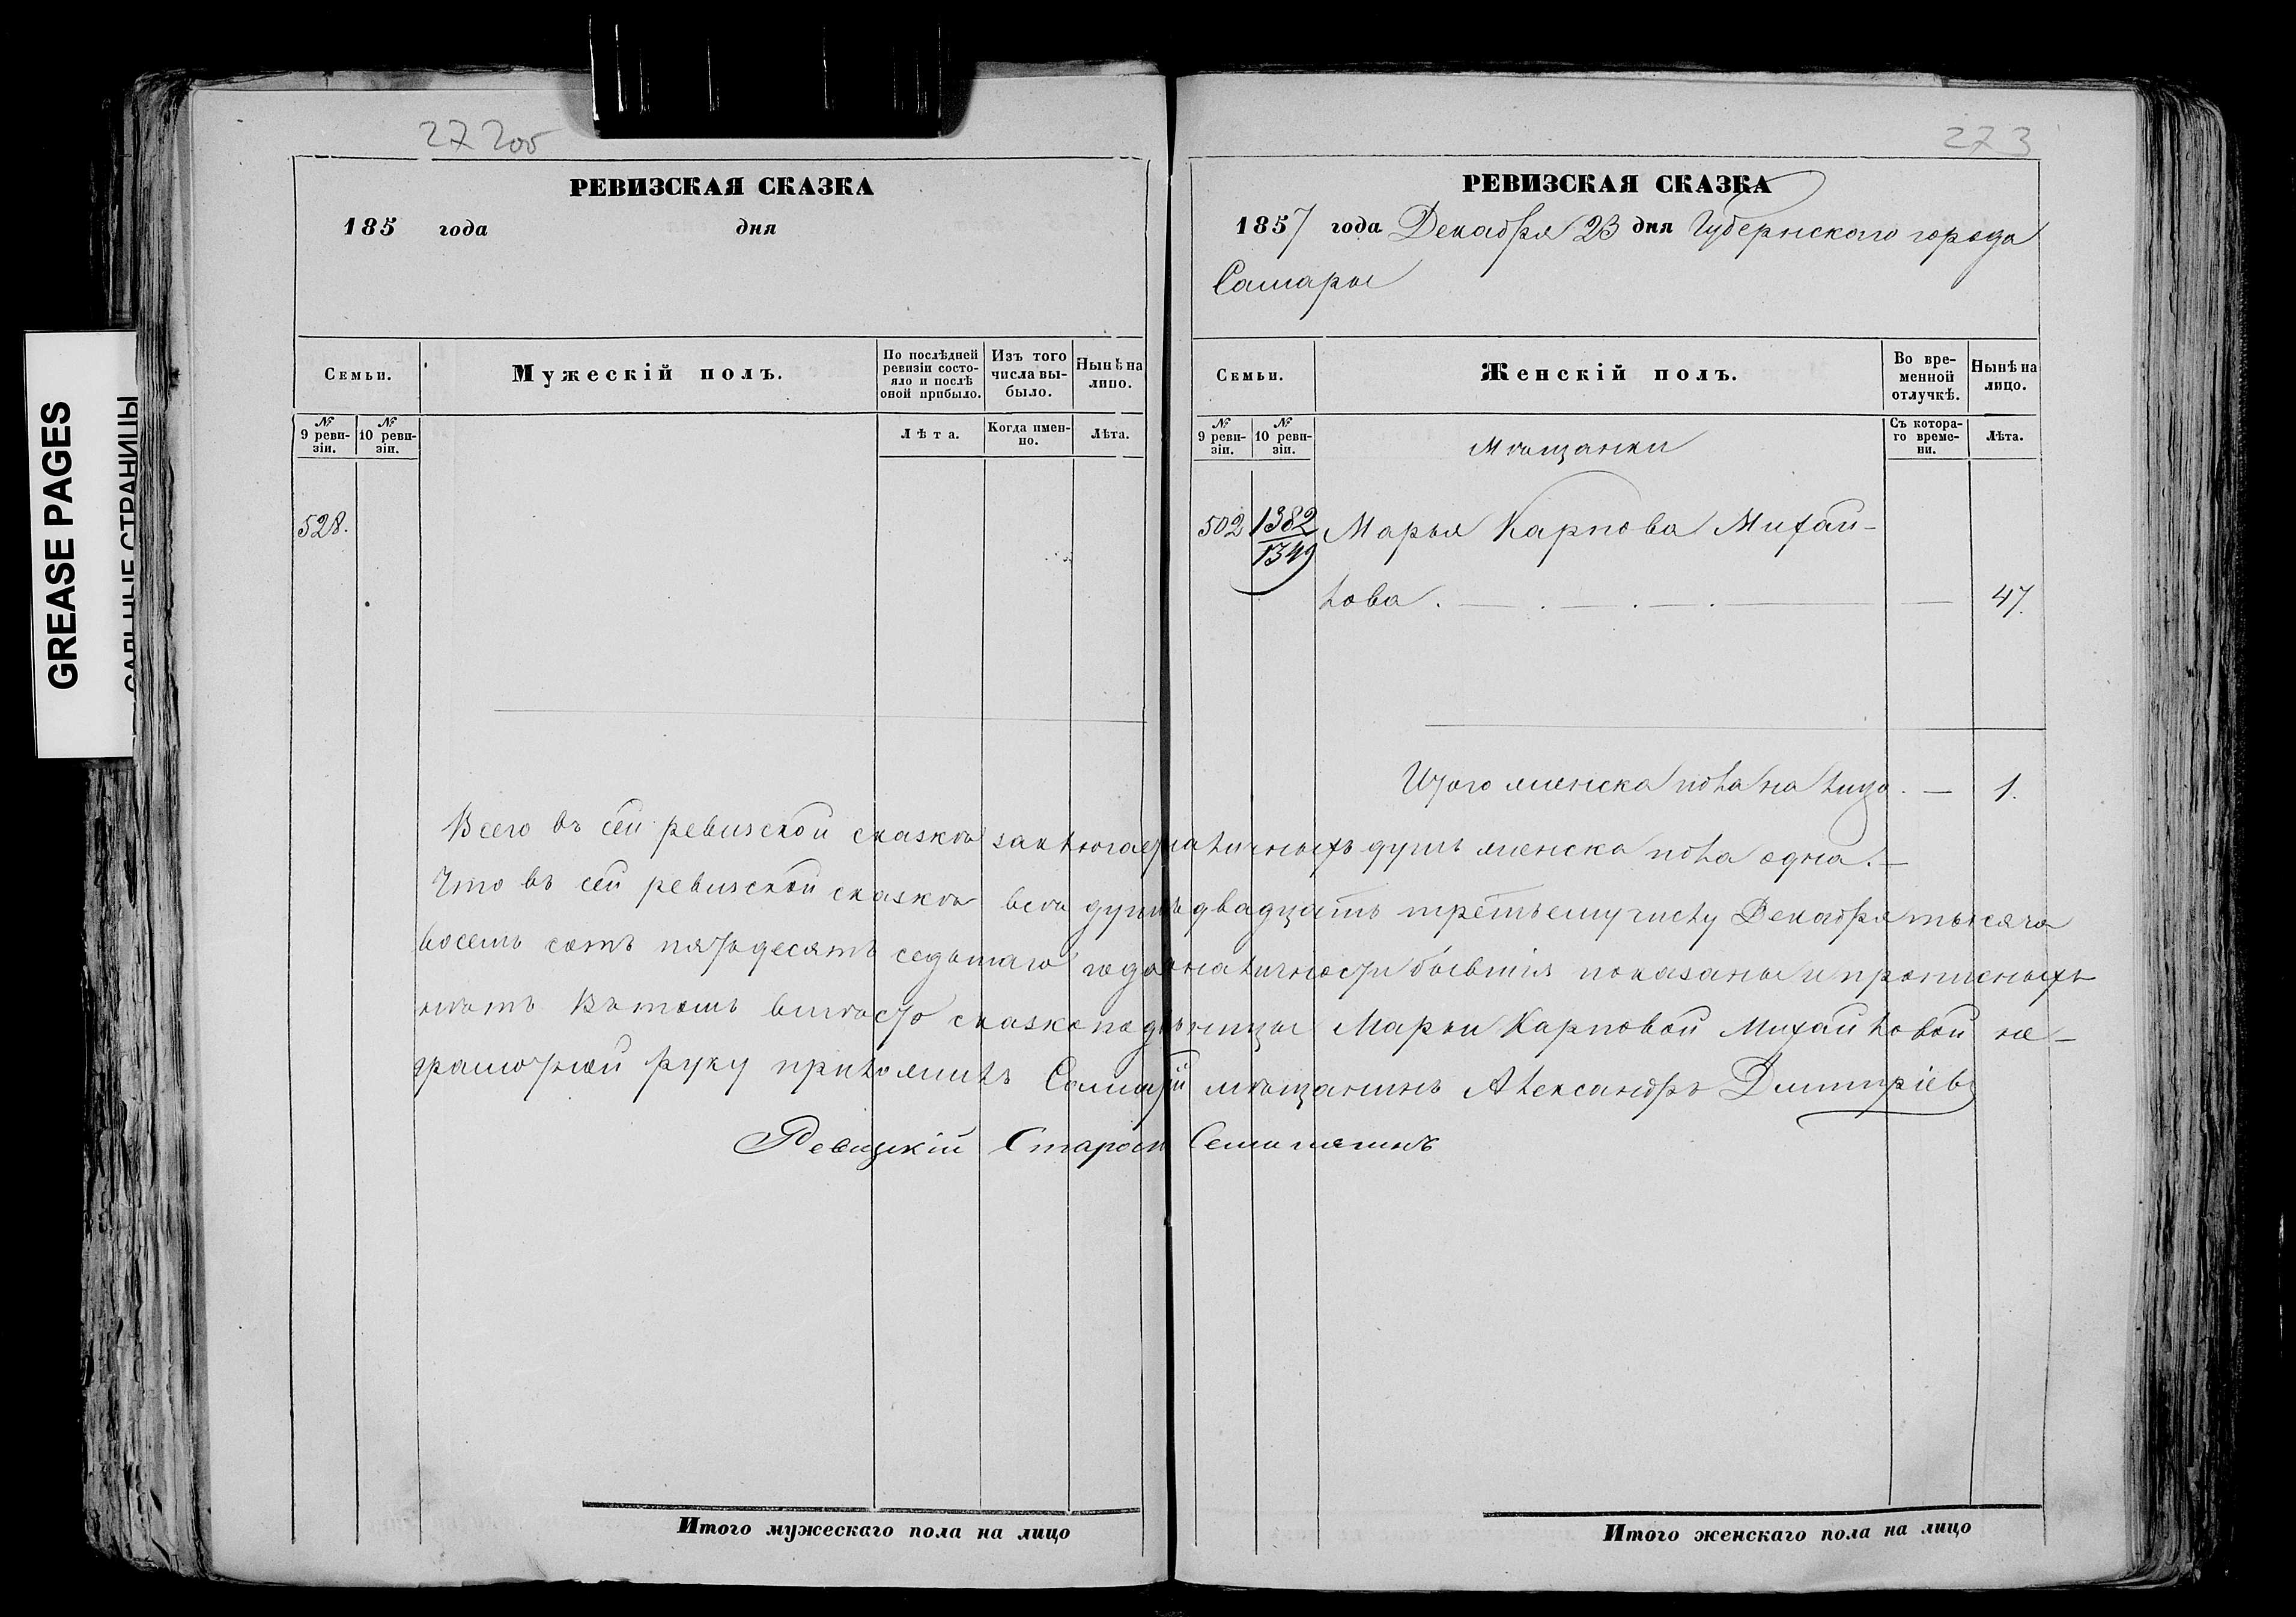 GREASE PAGES
САЛЬНЫЕ СТРАНИЦЫ
272об
РЕВИЗСКАЯ СКАЗКА
185 года дня
Семьи.
Мужескій полъ.
По послѣдней ревизіи состояло и послѣ оной прибыло.
Изъ того числа выбыло.
Нынѣ на лицо.
№ 9 ревизіи.
№ 10 ревизіи.
Лѣта.
Когда именно.
Лѣта.
528.
273
РЕВИЗСКАЯ СКАЗКА
1857 года Декабря 23 дня Губернскаго города
Самары
Семьи.
Женскій полъ.
Во временной отлучкѣ.
Нынѣ на лицо.
№ 9 ревизіи.
№ 10 ревизіи.
Мѣщанки
Съ котораго времени.
Лѣта.
502 1382 Марья Карпова Михай-
1349
лова . — . — . — . — — 47.
Итого женска пола на лицо. — 1.
Всего въ сей ревизской сказкѣ заключается наличныхъ душъ женска пола одна. —
Что въ сей ревизской сказкѣ всѣ души двадцать третьему числу Декабря тысяча
восемь сотъ пятьдесятъ седьмаго года въ наличности бывшія показаны и прописныхъ
нѣтъ Въ томъ вмѣсто сказкоподательницы Марьи Карповой Михайловой не-
грамотной руку приложилъ Самарскій мѣщанинъ Александръ Дмитріевъ
Ревизскій Староста
Итого мужескаго пола на лицо
Итого женскаго пола на лицо